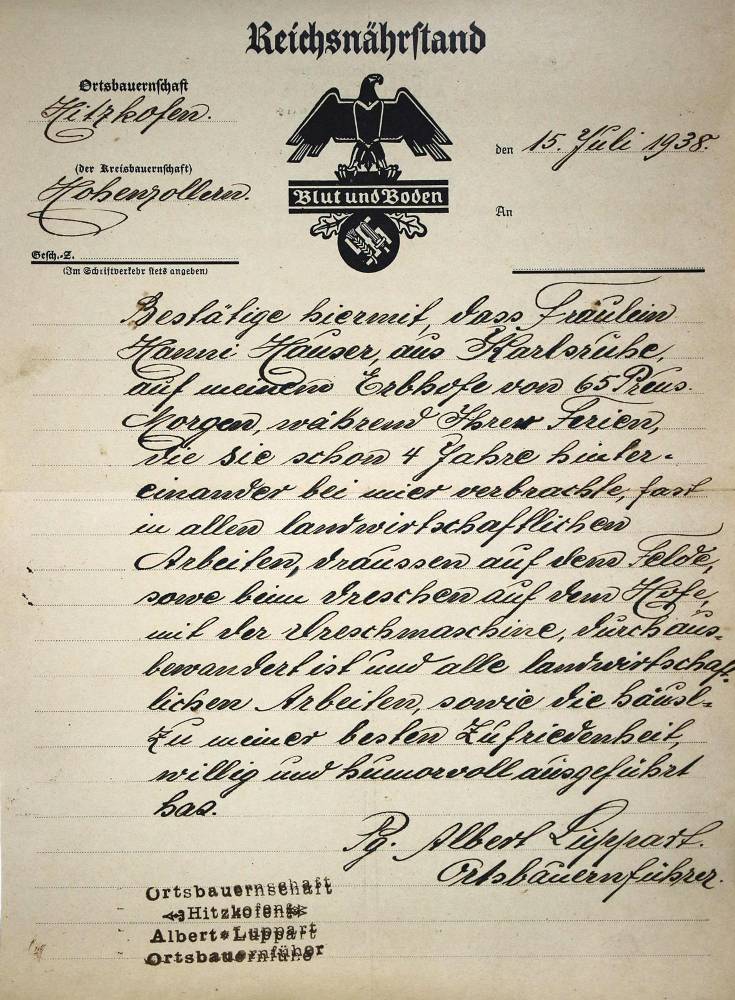 Reichsnährstand
Ortsbauernschaft
Hitzkofen.
(der Kreisbauernschaft)
Hohenzollern.
Gesch.-Z.
(Im Schriftverkehr stets angeben)
Blut und Boden
den 15. Juli 1938.
An
Bestätige hiermit, dass Fräulein
Hanni Hauser, aus Karlsruhe,
auf meinem Erbhofe von 65 Preus.
Morgen, während Ihren Ferien,
die sie schon 4 Jahre hinter-
einander bei mier verbrachte, fast
in allen landwirtschaftlichen
Arbeiten, draussen auf dem Felde,
sowe beim dreschen auf dem Hofe,
mit der Dreschmaschine, durchaus-
bewandert ist und alle landwirtschaft-
lichen Arbeiten, sowie die häusl-
Zu meiner besten Zufriedenheit,
willig und humorvoll ausgeführt
has.
Pg. Albert Luppart.
Ortsbauernführer.
Ortsbauernschaft
Hitzkofen
Albert Luppart
Ortsbauernfüher